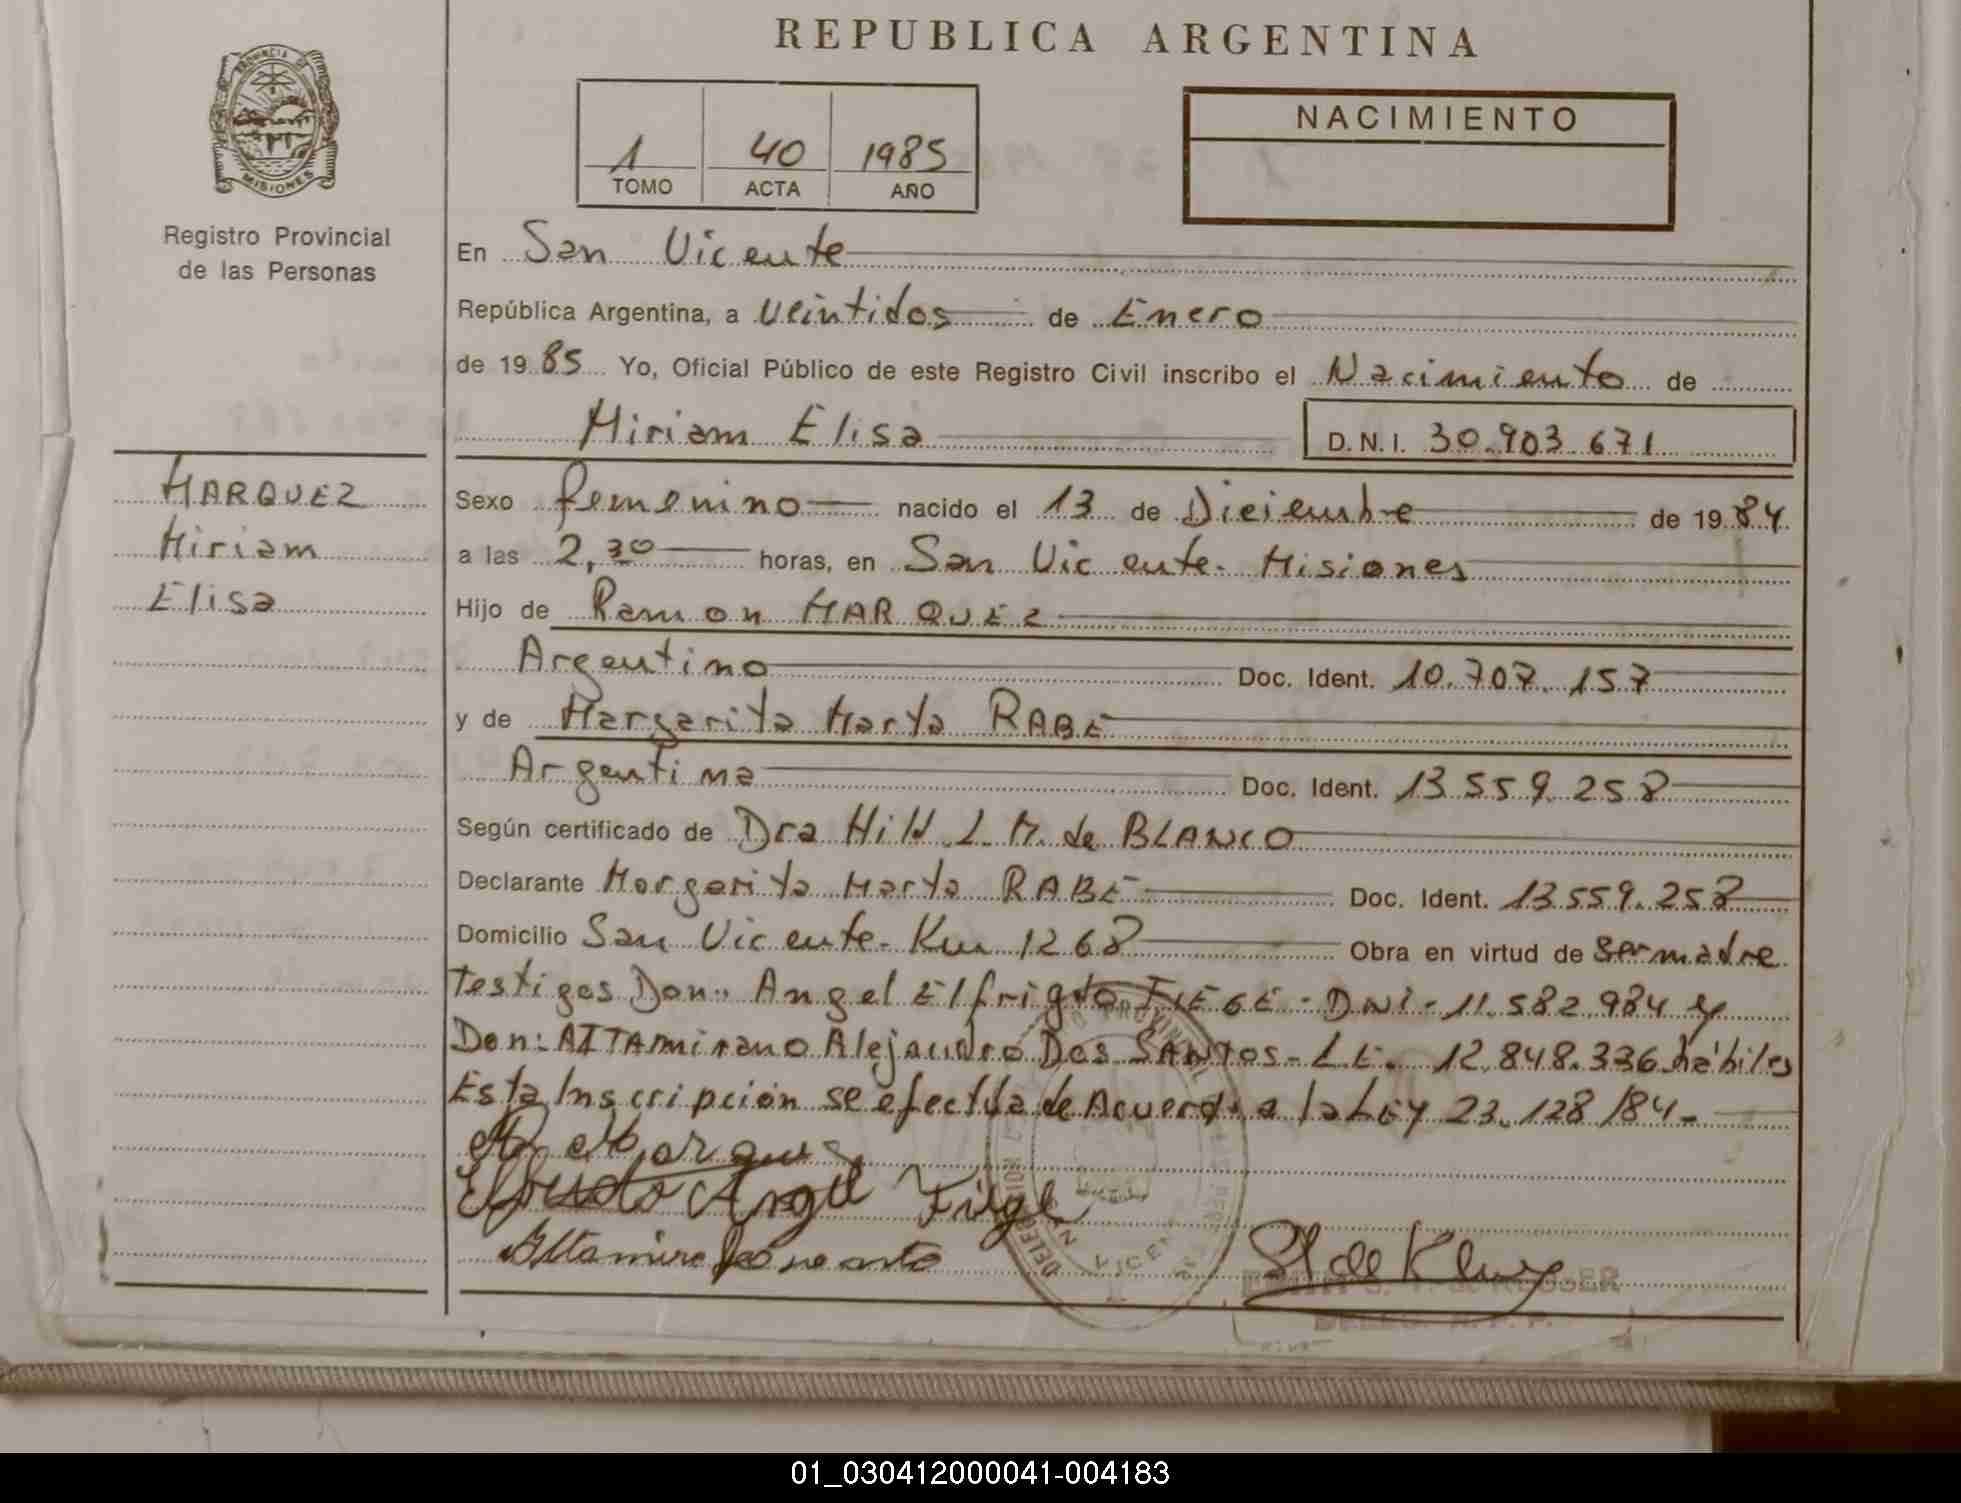 REPUBLICA ARGENTINA
PROVINCIA DE MISIONES
Registro Provincial
de las Personas
1 40 1985
TOMO ACTA AÑO
NACIMIENTO
En San Vicente
República Argentina, a Veintidos de Enero
de 1985 Yo, Oficial Público de este Registro Civil inscribo el Nacimiento de
Miriam Elisa D.N.I. 30.903.671
MARQUEZ
Miriam
Elisa
Sexo femenino nacido el 13 de Diciembre de 1984
a las 2,30 horas, en San Vicente - Misiones
Hijo de Ramon MARQUEZ
Argentino Doc. Ident. 10.707.157
y de Margarita Marta RABE
Argentina Doc. Ident. 13.559.258
Según certificado de Dra Hild L. M. de BLANCO
Declarante Margarita Marta RABE Doc. Ident. 13.559.258
Domicilio San Vicente - Km 1268 Obra en virtud de ser madre
Testigos Don: Angel Elfrigdo FIEGE - DNI - 11.582.984 y
Don: AlTAmirano Alejandro Dos SANTOS - L.E. 12.848.336 hábiles
Esta Inscripción se efectúa de Acuerdo a la LEY 23.128/84-
Marquez
Angel Fiege
SAN VICENTE
01_030412000041-004183